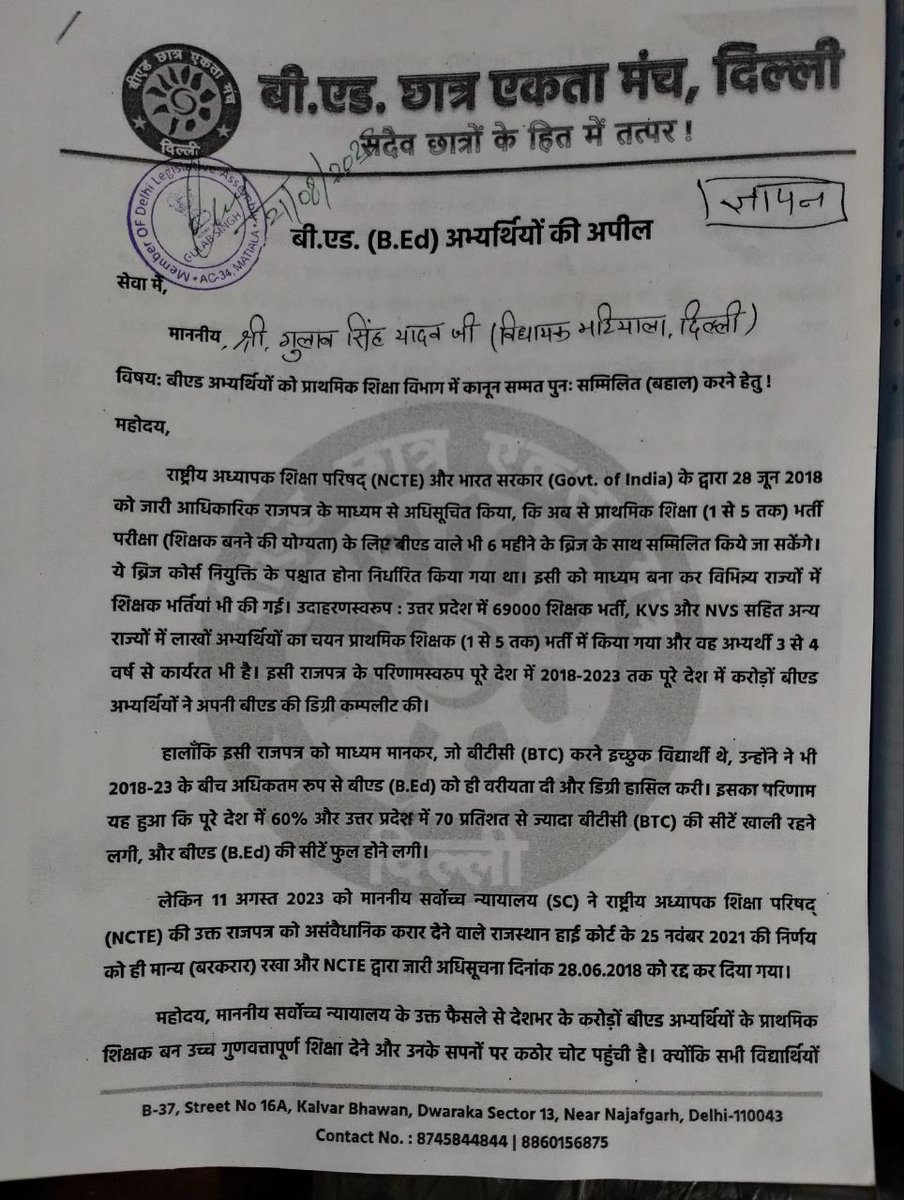 बीएड छात्र एकता मंच
दिल्ली
बी.एड. छात्र एकता मंच, दिल्ली
सदैव छात्रों के हित में तत्पर !
Member OF Delhi Legislative Assembly
GULAB SINGH
AC-34, MATIALA
ज्ञापन
बी.एड. (B.Ed) अभ्यर्थियों की अपील
सेवा में,
माननीय, श्री, गुलाब सिंह यादव जी (विधायक मटियाला, दिल्ली)
विषय: बीएड अभ्यर्थियों को प्राथमिक शिक्षा विभाग में कानून सम्मत पुनः सम्मिलित (बहाल) करने हेतु !
महोदय,
राष्ट्रीय अध्यापक शिक्षा परिषद् (NCTE) और भारत सरकार (Govt. of India) के द्वारा 28 जून 2018
को जारी आधिकारिक राजपत्र के माध्यम से अधिसूचित किया, कि अब से प्राथमिक शिक्षा (1 से 5 तक) भर्ती
परीक्षा (शिक्षक बनने की योग्यता) के लिए बीएड वाले भी 6 महीने के ब्रिज के साथ सम्मिलित किये जा सकेंगे।
ये ब्रिज कोर्स नियुक्ति के पश्चात होना निर्धारित किया गया था। इसी को माध्यम बना कर विभिन्र्य राज्यों में
शिक्षक भर्तियां भी की गई। उदाहरणस्वरुप : उत्तर प्रदेश में 69000 शिक्षक भर्ती, KVS और NVS सहित अन्य
राज्यों में लाखों अभ्यर्थियों का चयन प्राथमिक शिक्षक (1 से 5 तक) भर्ती में किया गया और वह अभ्यर्थी 3 से 4
वर्ष से कार्यरत भी है। इसी राजपत्र के परिणामस्वरुप पूरे देश में 2018-2023 तक पूरे देश में करोड़ों बीएड
अभ्यर्थियों ने अपनी बीएड की डिग्री कम्पलीट की।
हालाँकि इसी राजपत्र को माध्यम मानकर, जो बीटीसी (BTC) करने इच्छुक विद्यार्थी थे, उन्होंने ने भी
2018-23 के बीच अधिकतम रुप से बीएड (B.Ed) को ही वरीयता दी और डिग्री हासिल करी। इसका परिणाम
यह हुआ कि पूरे देश में 60% और उत्तर प्रदेश में 70 प्रतिशत से ज्यादा बीटीसी (BTC) की सीटें खाली रहने
लगी, और बीएड (B.Ed) की सीटें फुल होने लगी।
लेकिन 11 अगस्त 2023 को माननीय सर्वोच्च न्यायालय (SC) ने राष्ट्रीय अध्यापक शिक्षा परिषद्
(NCTE) की उक्त राजपत्र को असंवैधानिक करार देने वाले राजस्थान हाई कोर्ट के 25 नवंबर 2021 की निर्णय
को ही मान्य (बरकरार) रखा और NCTE द्वारा जारी अधिसूचना दिनांक 28.06.2018 को रद्द कर दिया गया।
महोदय, माननीय सर्वोच्च न्यायालय के उक्त फैसले से देशभर के करोड़ों बीएड अभ्यर्थियों के प्राथमिक
शिक्षक बन उच्च गुणवत्तापूर्ण शिक्षा देने और उनके सपनों पर कठोर चोट पहुंची है। क्योंकि सभी विद्यार्थियों
B-37, Street No 16A, Kalvar Bhawan, Dwaraka Sector 13, Near Najafgarh, Delhi-110043
Contact No. : 8745844844 | 8860156875